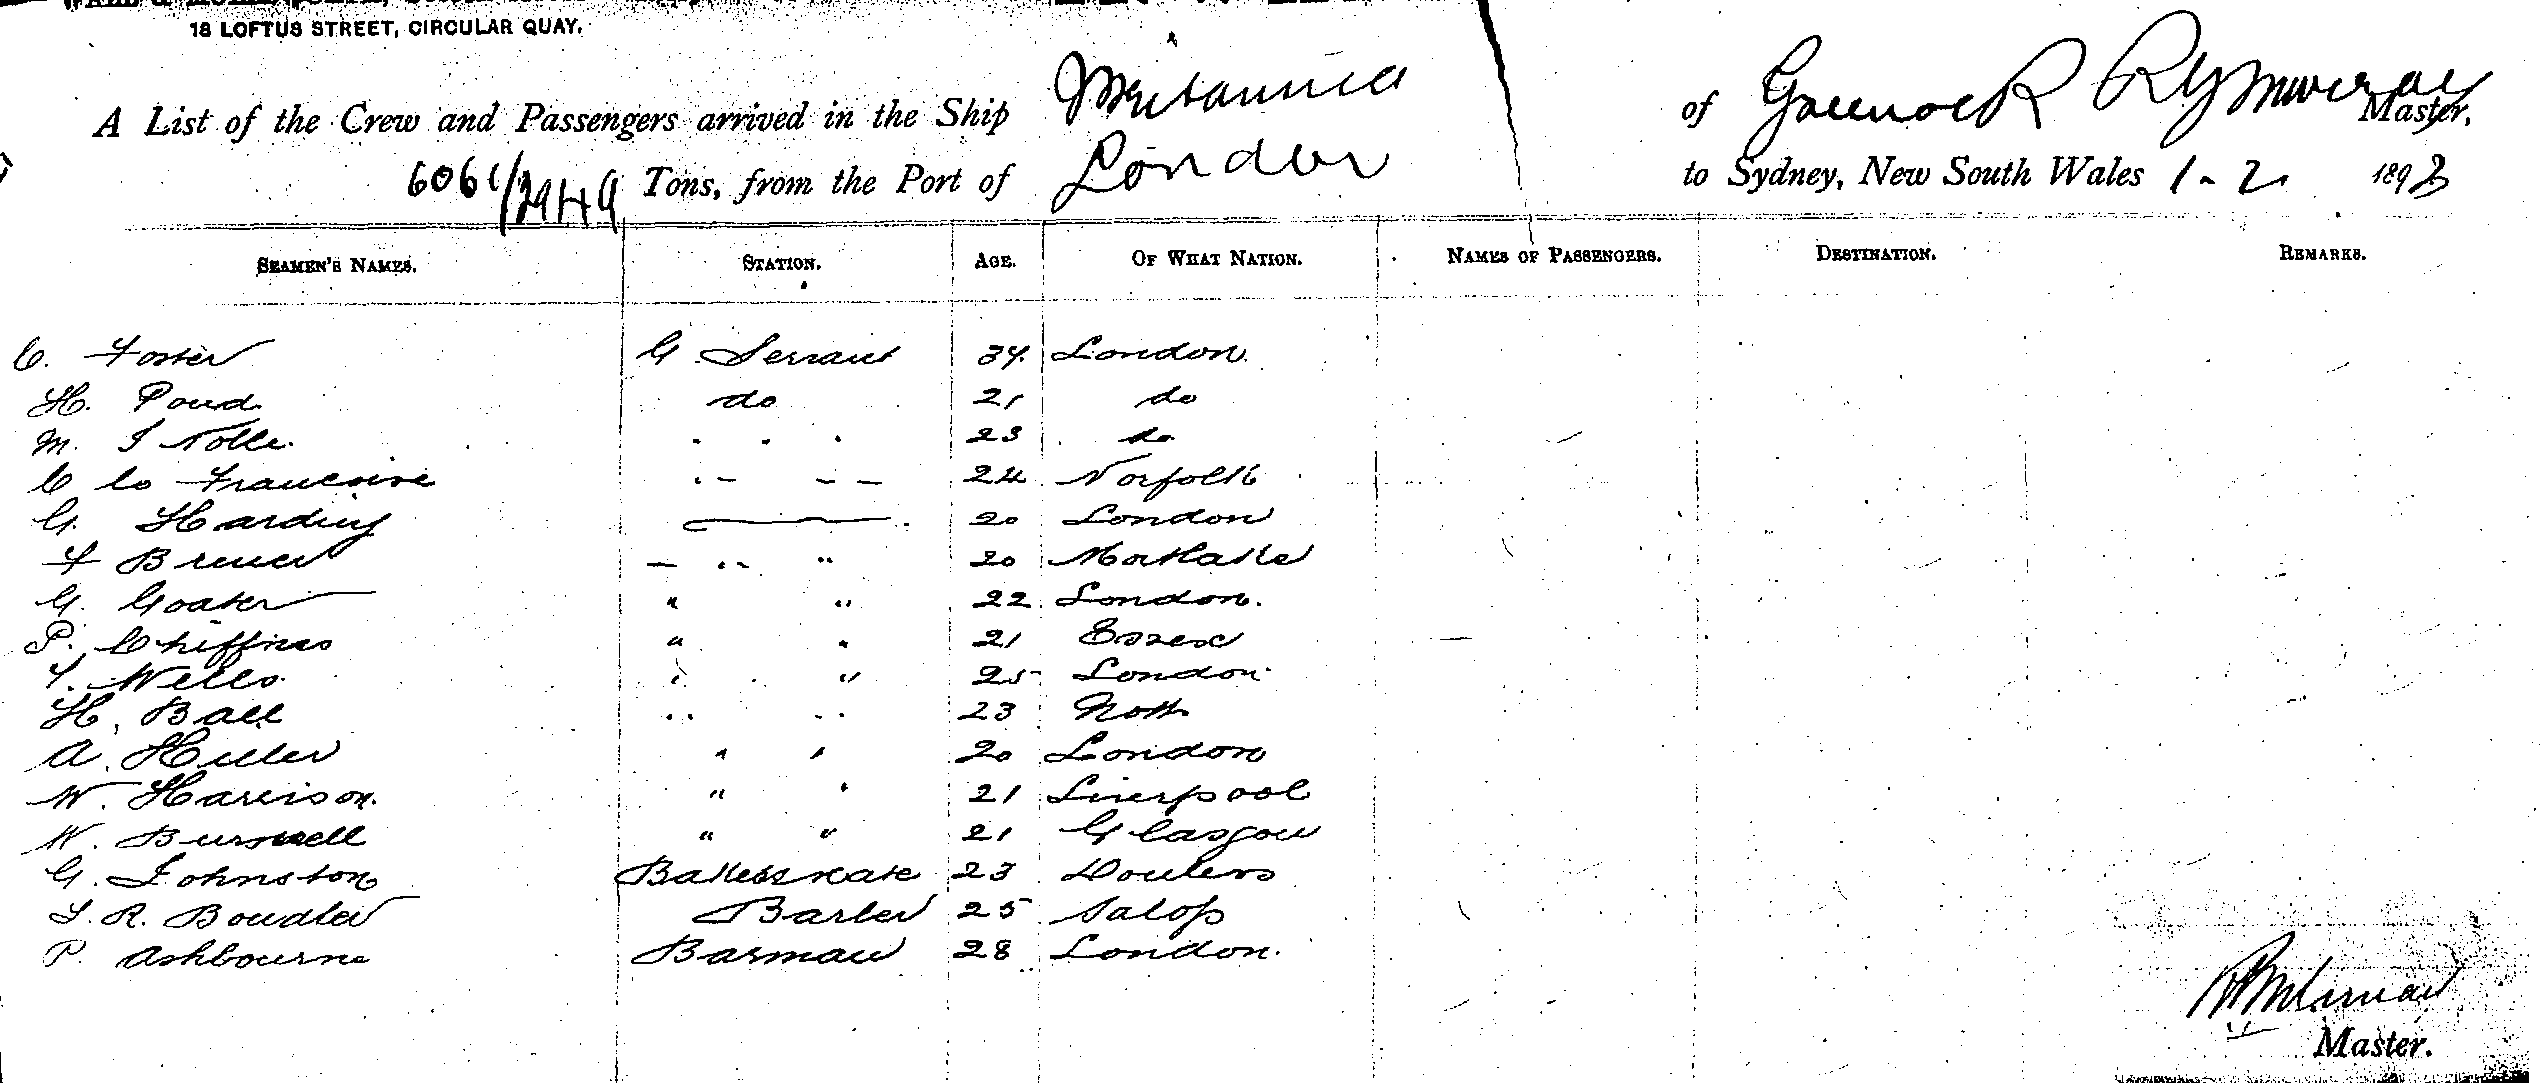 18 LOFTUS STREET, CIRCULAR QUAY.
A List of the Crew and Passengers arrived in the Ship Britannia of Greenock Master.
Tons, from the Port of London to Sydney, New South Wales 1-2 1893
SEAMEN'S NAMES. STATION. AGE. OF WHAT NATION. NAMES OF PASSENGERS. DESTINATION. REMARKS.
C. Foster G Servant 34. London.
H. Pond do 21 do
M. J Nolle. 23 do
C 24 Norfolk
G. Harding 20 London
F Brewer 20 Mortlake
G. Goater " " 22 London.
P. Chiffins " " 21 Essex
Wells " 25 London
H. Ball 23 Nott
A. Huller " " 20 London
W. Harrison. " " 21 Liverpool
W. Burwell " " 21 Glasgow
G. Johnston 23
J. R. Bowdler Barber 25 Salop
P. Ashbourne Barman 28 London.
Master.